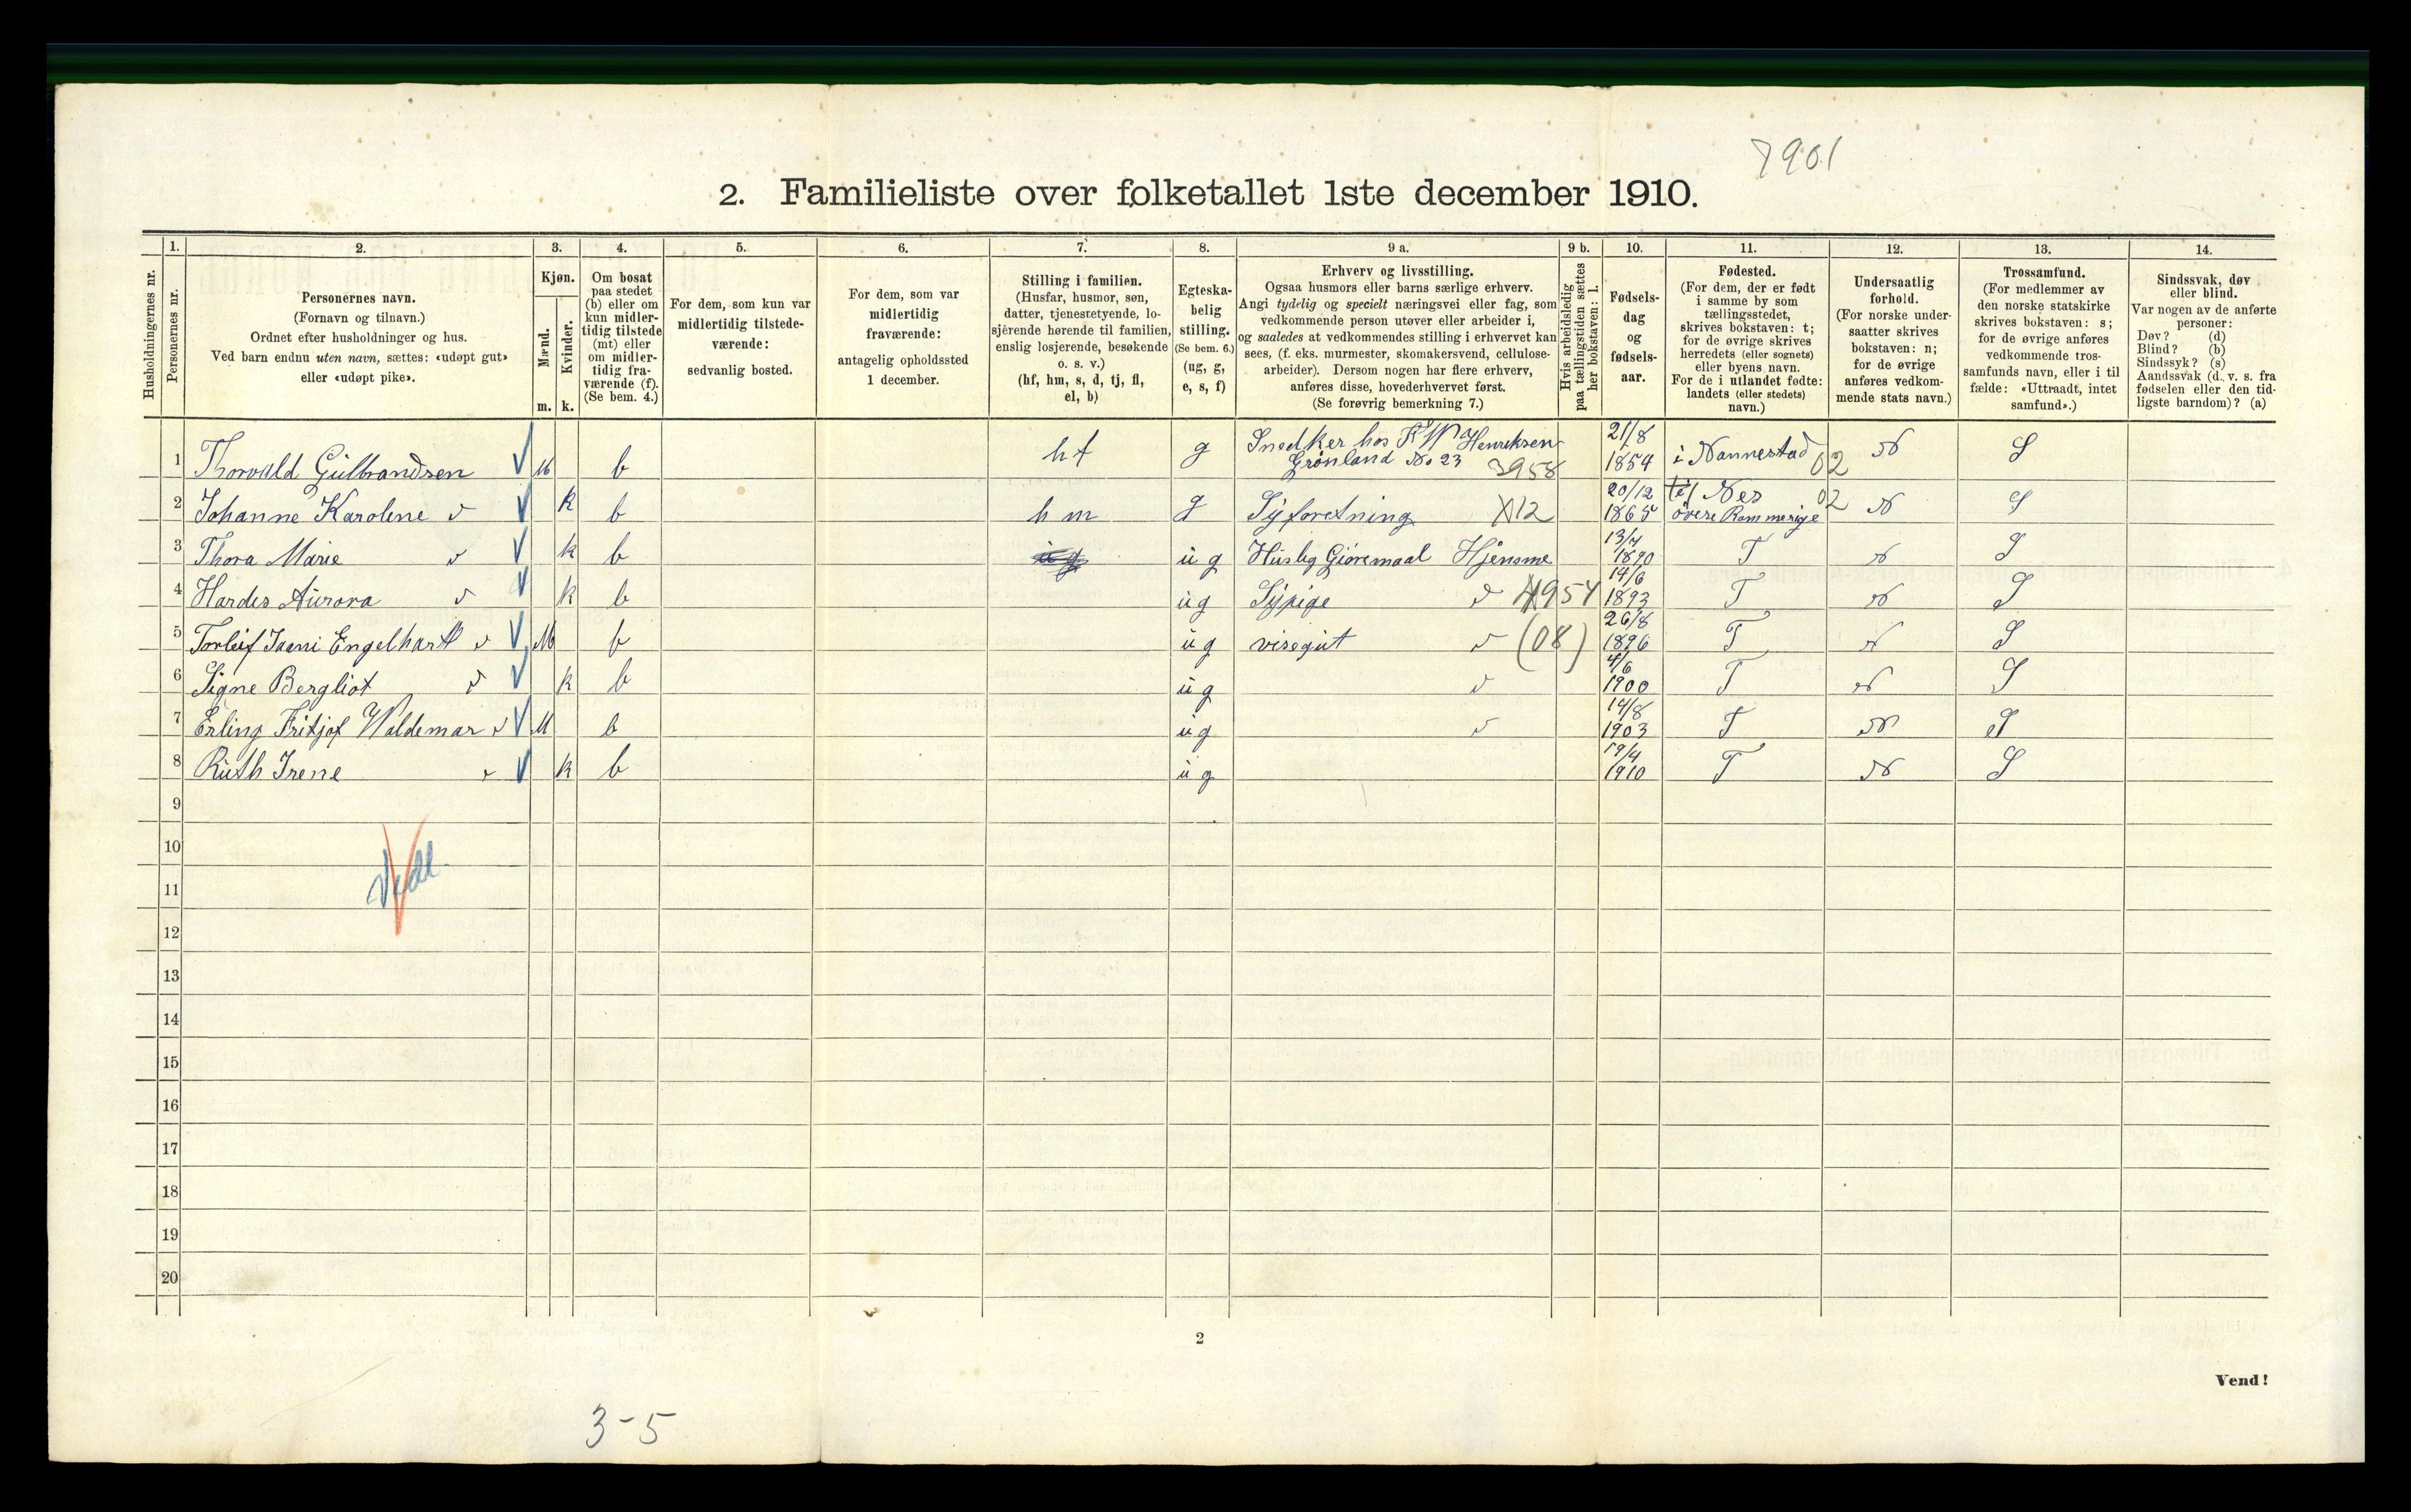 7901
2. Familieliste over folketallet 1ste december 1910.
Husholdningernes nr.
1. Personernes nr.
2. Personernes navn. (Fornavn og tilnavn.) Ordnet efter husholdninger og hus. Ved barn endnu uten navn, sættes: «udøpt gut» eller «udøpt pike».
3. Kjøn. Mænd. m. Kvinder. k.
4. Om bosat paa stedet (b) eller om kun midlertidig tilstede (mt) eller om midlertidig fraværende (f). (Se bem. 4.)
5. For dem, som kun var midlertidig tilstedeværende: sedvanlig bosted.
6. For dem, som var midlertidig fraværende: antagelig opholdssted 1 december.
7. Stilling i familien. (Husfar, husmor, søn, datter, tjenestetyende, losjérende hørende til familien, enslig losjerende, besøkende o. s. v.) (hf, hm, s, d, tj, fl, el, b)
8. Egteskabelig stilling. (Se bem. 6.) (ug, g, e, s, f)
9 a. Erhverv og livsstilling. Ogsaa husmors eller barns særlige erhverv. Angi tydelig og specielt næringsvei eller fag, som vedkommende person utøver eller arbeider i, og saaledes at vedkommendes stilling i erhvervet kan sees, (f. eks. murmester, skomakersvend, cellulosearbeider). Dersom nogen har flere erhverv, anføres disse, hovederhvervet først. (Se forøvrig bemerkning 7.)
9 b. Hvis arbeidsledig paa tællingstiden sættes her bokstaven: l.
10. Fødselsdag og fødselsaar.
11. Fødested. (For dem, der er født i samme by som tællingsstedet, skrives bokstaven: t; for de øvrige skrives herredets (eller sognets) eller byens navn. For de i utlandet fødte: landets (eller stedets) navn.)
12. Undersaatlig forhold. (For norske undersaatter skrives bokstaven: n; for de øvrige anføres vedkommende stats navn.)
13. Trossamfund. (For medlemmer av den norske statskirke skrives bokstaven: s; for de øvrige anføres vedkommende trossamfunds navn, eller i tilfælde: «Uttraadt, intet samfund».)
14. Sindssvak, døv eller blind. Var nogen av de anførte personer: Døv? (d) Blind? (b) Sindssyk? (s) Aandssvak (d. v. s. fra fødselen eller den tidligste barndom)? (a)
1 Thorvald Gulbrandsen M b hf g Snedker hos K W Henriksen Grønland No 23 3958 21/8 1854 i Nannestad 02 N S
2 Johanne Karoline k b hm g Syforetning X12 20/12 1865 Nes øvere Rommerige 02 N S
3 Thora Marie k b ug Huslig Gjøremaal Hjemme 13/4 1890 T N S
4 Hardis Aurora k b ug Sypige 4954 14/6 1893 T N S
5 Torleif Engelhart M b ug visegut (08) 26/8 1896 T N S
6 Signe Bergliot k b ug 4/6 1900 T N S
7 Erling Fritjof Waldemar M b ug 14/8 1903 T N S
8 Ruth Irene k b ug 19/4 1910 T N S
9
10
11
12
13
14
15
16
17
18
19
20
2
Vend!
3-5